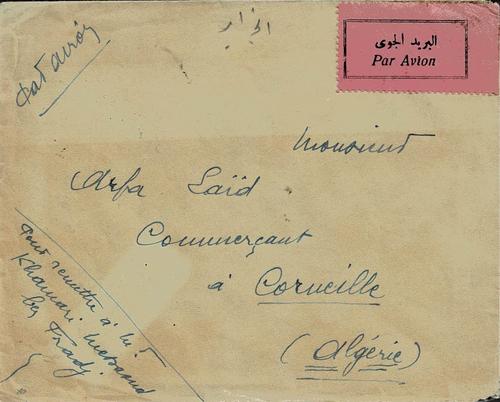 Par avion
الجزائر
البريد الجوى
Par Avion
Monsieur
Arfa Saïd
Commerçant
à Corneille
(Algérie)
Pour remettre à Mr
Khamari Messaoud
ben Trady